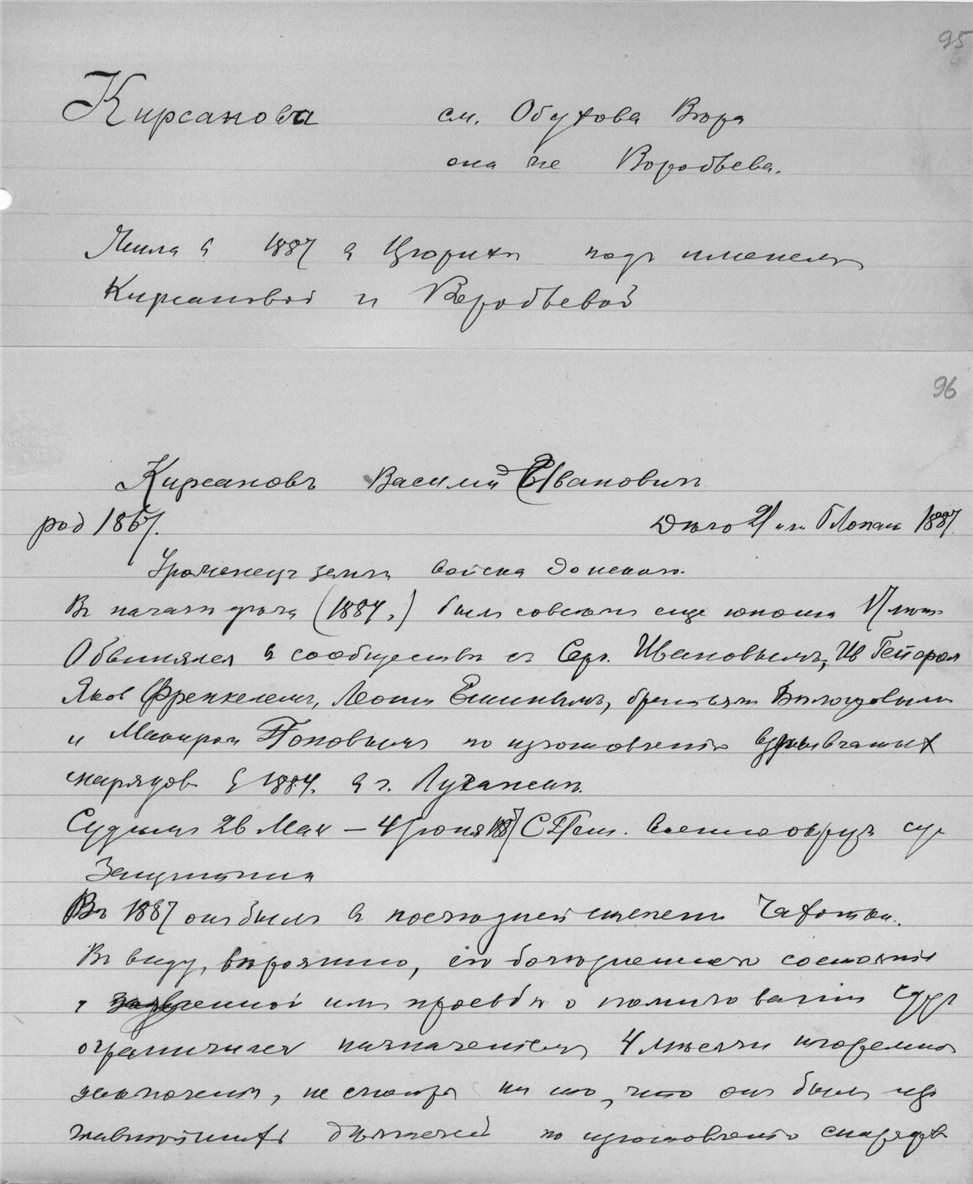 95
Кирсанова см. Обухова Вѣра
она же Воробьева.
Жила в 1887 в Цюрихѣ подъ именемъ
Кирсановой и Воробьевой
96
Кирсановъ Василий Ивановичъ
род 1867. Дѣло 21 или Г. Лопатина 1887.
Уроженецъ земли войска Донского.
Въ началѣ дѣла (1884.) былъ совсѣмъ еще юноша 17 лѣтъ
Обвинялся в сообществѣ съ Серг. Ивановымъ, Ив Гейером
Яков Френкелемъ, Леонид Ешинымъ, братьями
и Макаром Поповымъ по изготовленiю взрывчатых
снарядов в 1884. в г. Луганскѣ.
Судился 26 Мая — 4 Iюня 1887 С Пет. Военно округ суд
Защитник
Въ 1887 он былъ в последней степени Чахотки.
Въ виду, вѣроятно, его болѣзненнаго состоянiя
и им просьбы о помиловании Суд
ограничился назначенiемъ 4 мѣсячн тюремнаго
заключения, не смотря на то, что он былъ из
главнѣйших дѣятелей по изготовленiю снарядов